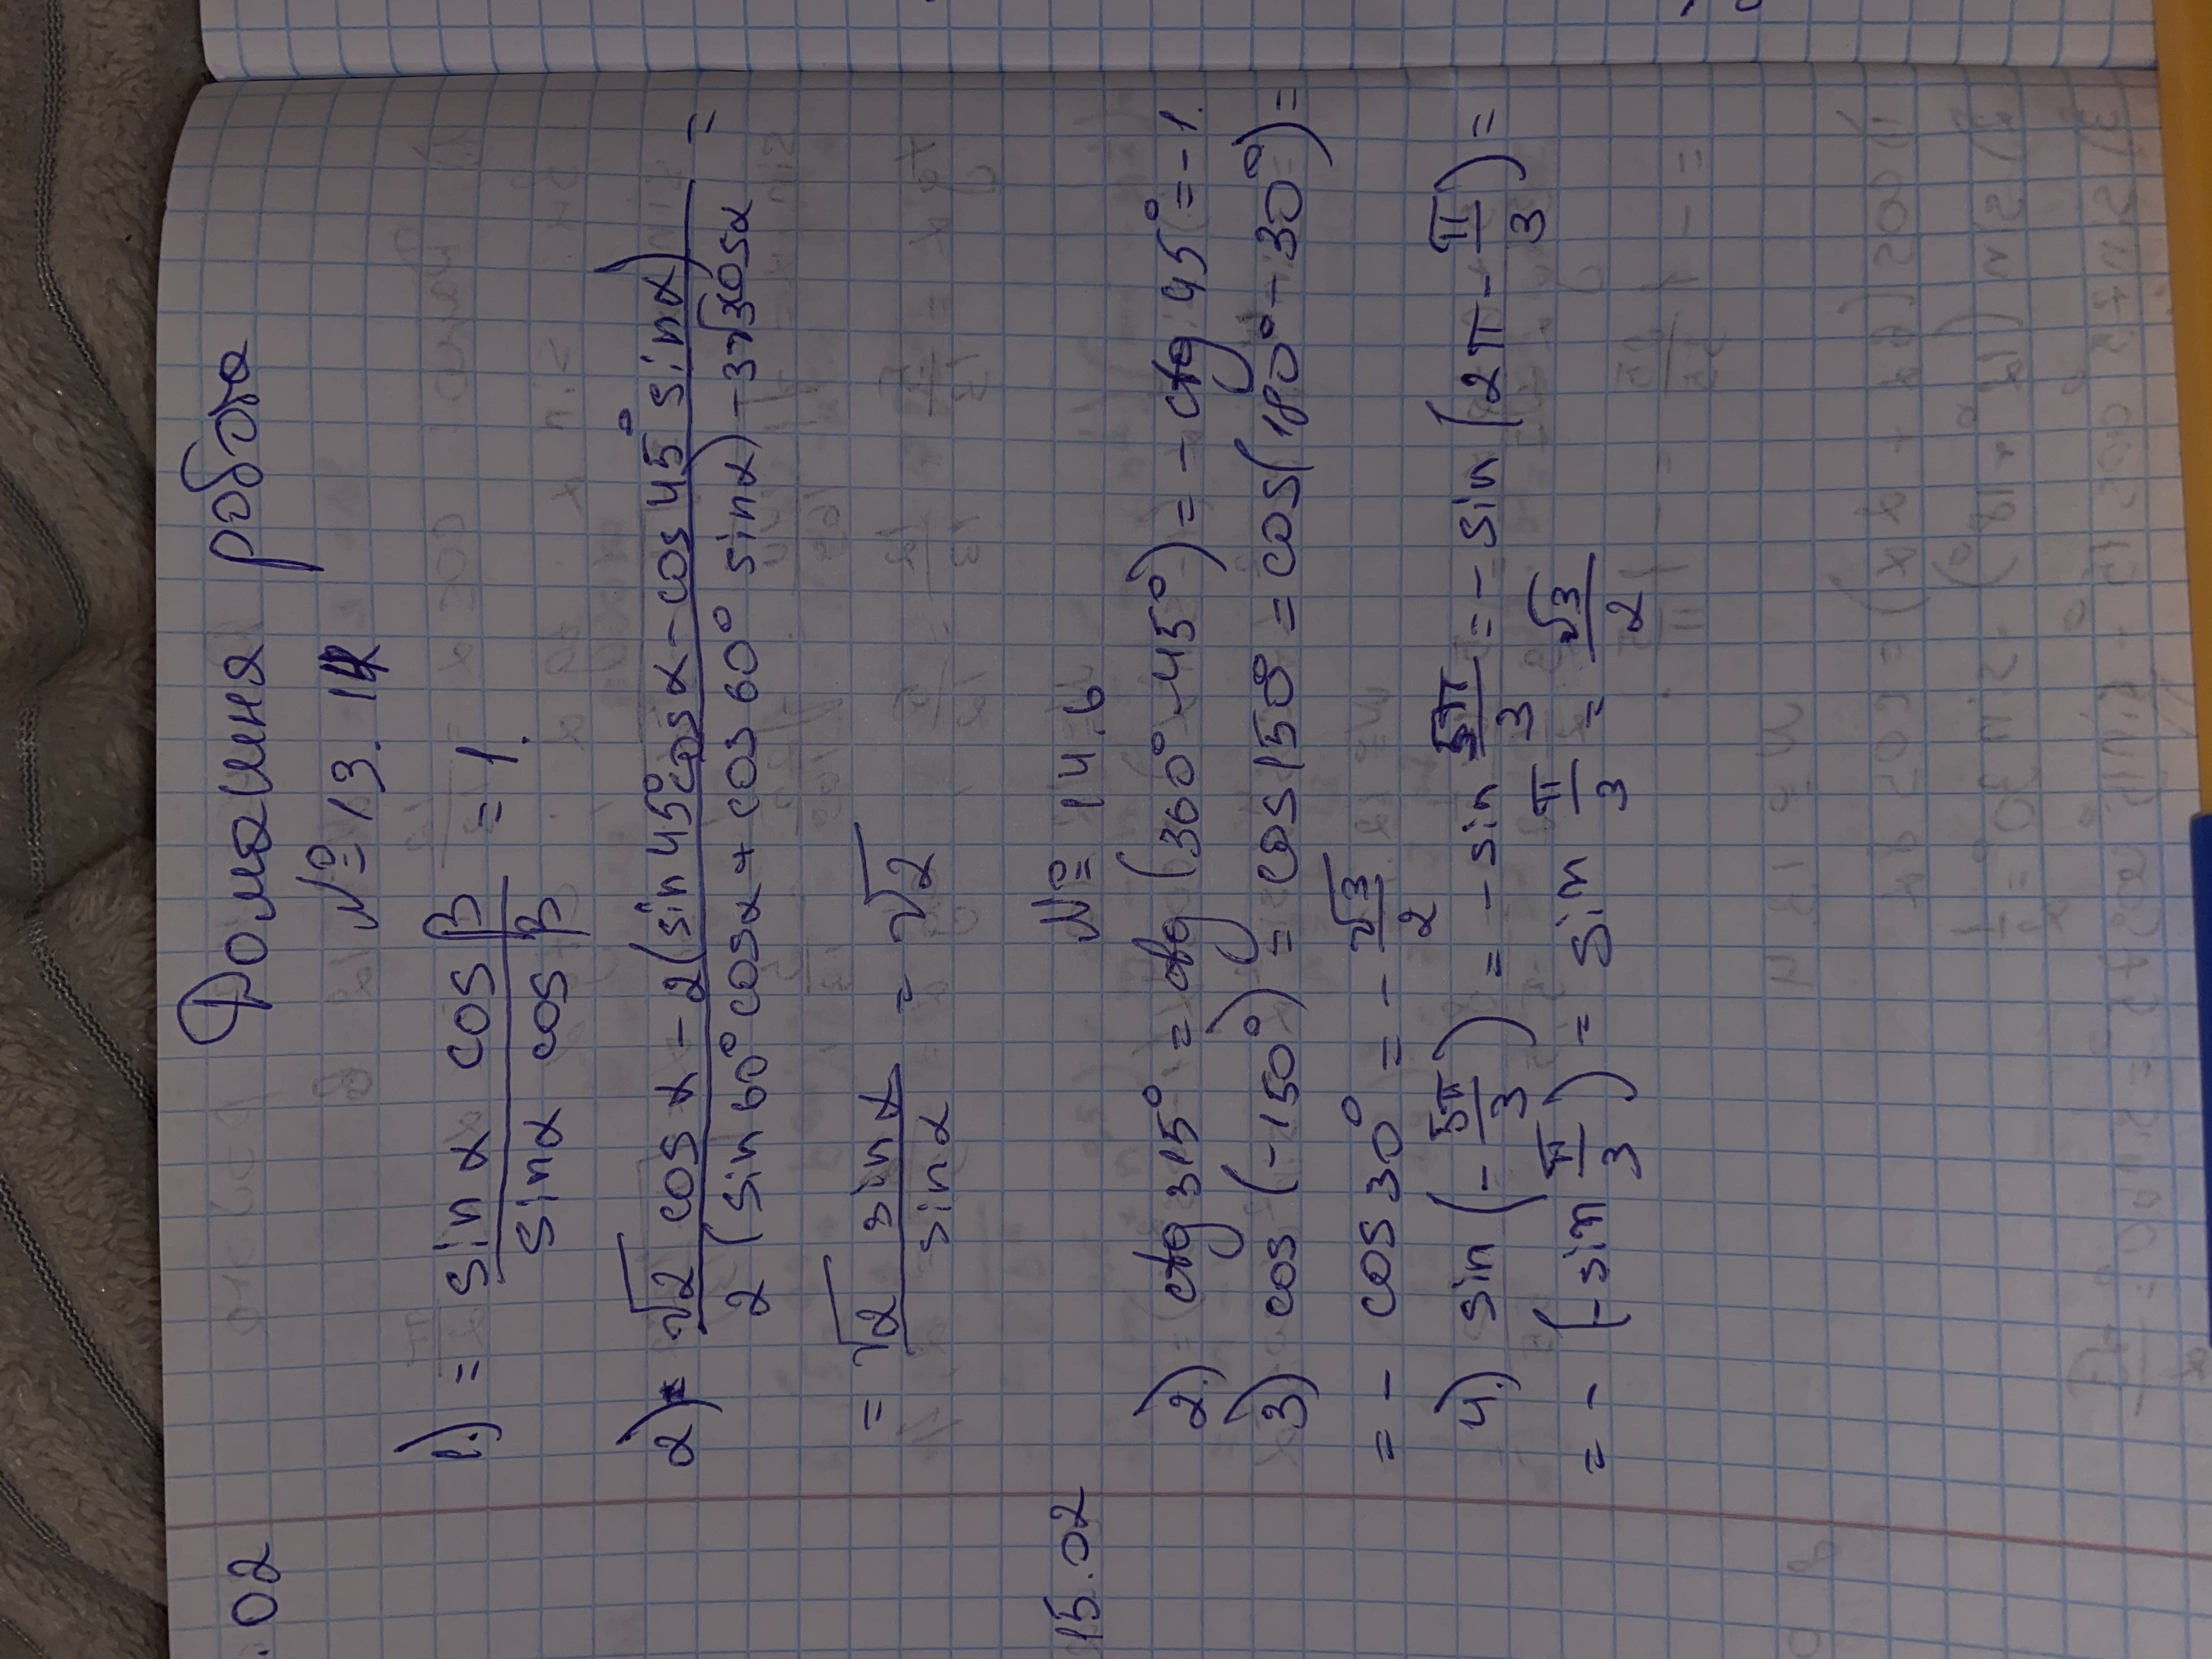 .02
Домашня робота
№ 13.14
1.) = sinα cosβ / sinα cosβ = 1.
2) = √2 cosα - 2(sin45°cosα - cos45° sinα) / 2(sin60°cosα + cos60° sinα) - √3cosα =
= √2 sinα / sinα = √2
15.02
№ 14.6
2.) ctg315° = ctg(360° - 45°) = - ctg45° = -1.
3) cos(-150°) = cos150° = cos(180° - 30°) =
= - cos30° = - √3/2
4.) sin(- 5π/3) = - sin 5π/3 = - sin(2π - π/3) =
= - (-sin π/3) = sin π/3 = √3/2